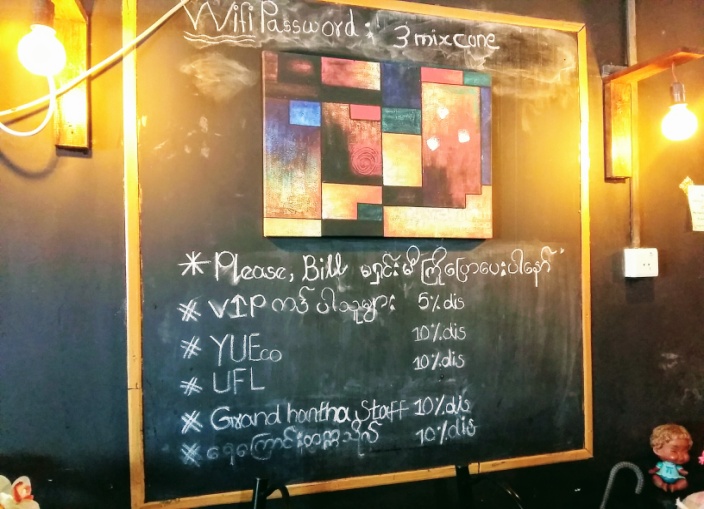 Wifi Password : 3mixcone
* Please, Bill မရှင်းမီ ကြိုပြောပေးပါနော်
* VIP ကဒ် ပါသူများ 5%dis
10%dis
* YUEco 10%dis
* UFL
* Grand hantha Staff 10%dis
* 10%dis